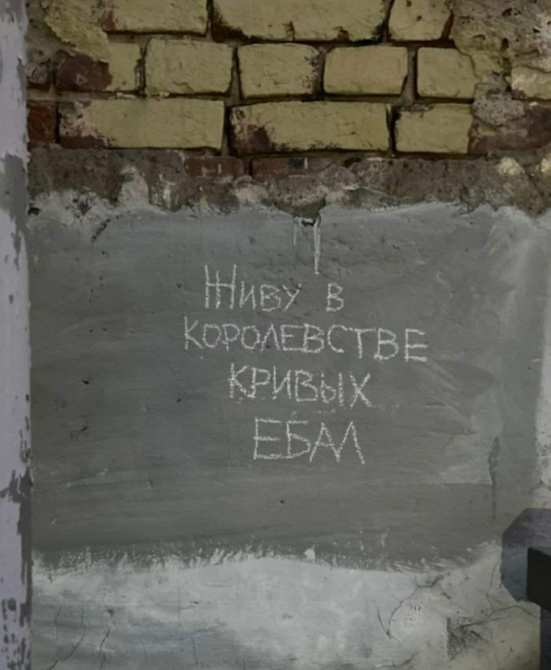 Живу в
королевстве
кривых
ебал